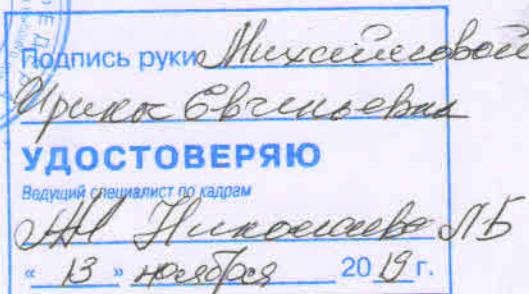 Подпись руки Михайловой
Ирины Евгеньевны
УДОСТОВЕРЯЮ
Ведущий специалист по кадрам
Николаева ЛБ
« 13 » ноября 2019 г.